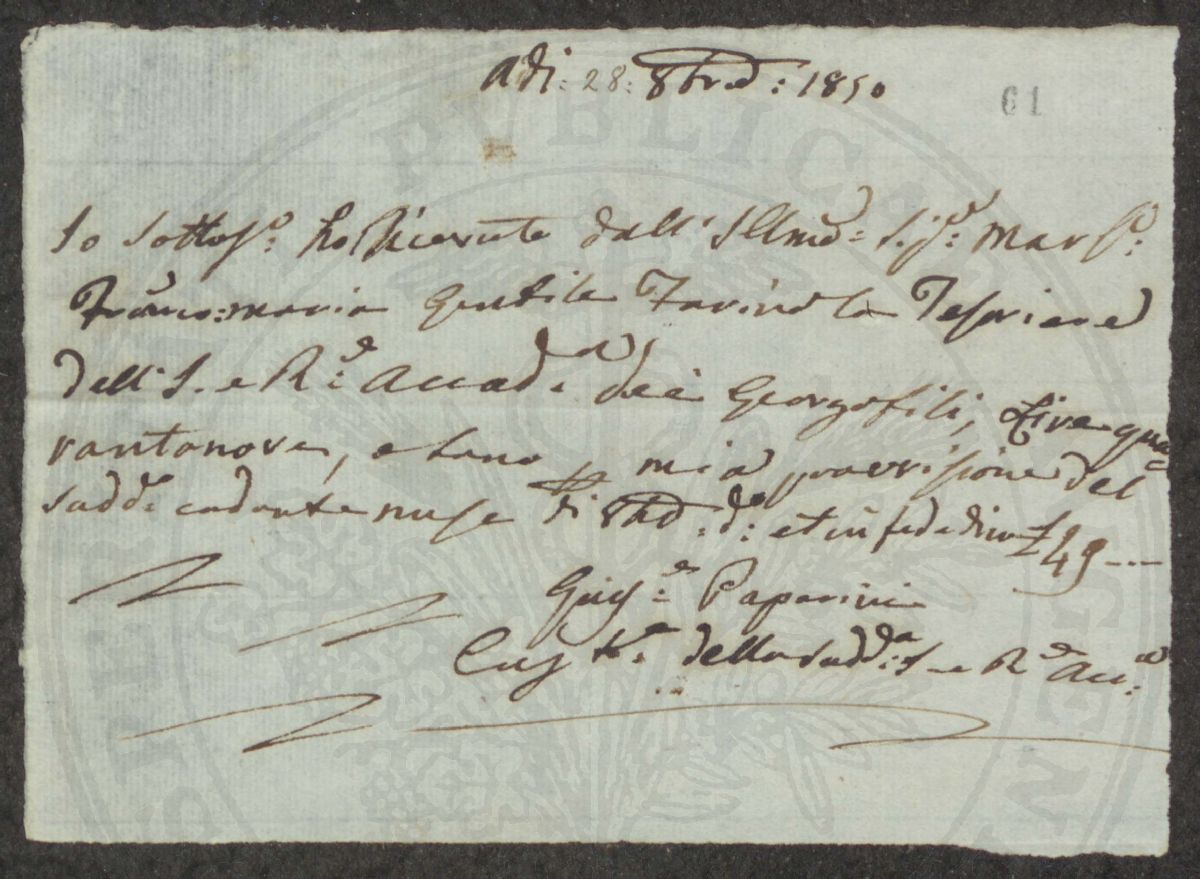 Adi: 28: 8bre: 1850
61
Io Sottos.o: ho Ricevuto dall' Illmo: Sig.re: Mar.se:
Franco:maria Gentile Farinola Tesoriere
dell' I. e R.e: Accad.a: dei Georgofili, Lire qua=
rantanove, e sono mia provvisione del
sudd.o: cadente mese di 8bre: d.o: et in fede dico £ 49 ---
Gius.e: Paperini
Cust.e: della sudd.a: I. e R.e Acc.a:
PUBLICAE